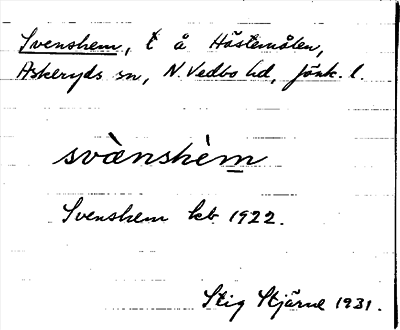 Svenshem, t å Hästemålen,
Askeryds sn, N. Vedbo hd, Jönk. l.
svànshèm
Svenshem kb 1922.
Stig Stjärne 1931.